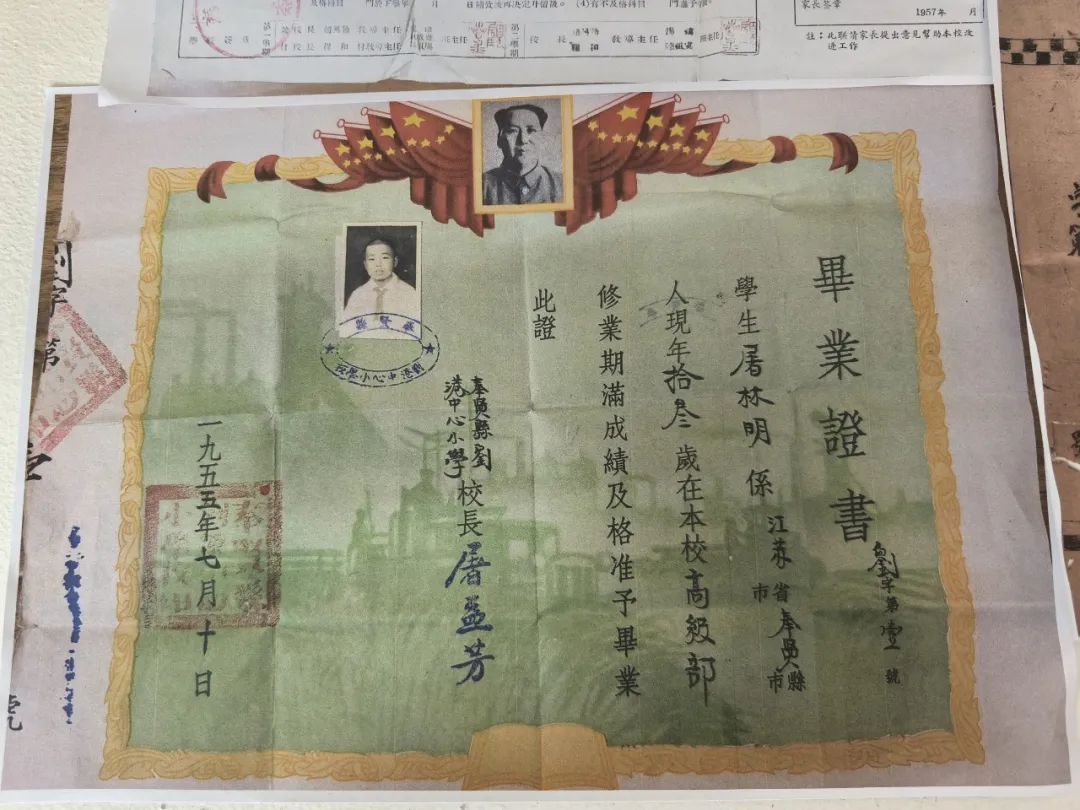 畢業證書
劉字第壹號
學生屠林明係江苏省奉賢縣
市
市
人現年拾叁歲在本校高級部
修業期滿成績及格准予畢業
此證
奉賢縣劉
港中心小學校長屠益芳
一九五五年七月十日
奉賢縣
劉港中心小學校
家長簽章
1957年 月
註：此联情家長提出意見幫助本校改
進工作